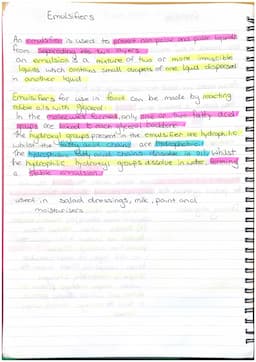 Emulsifiers
An emulsifier is used to prevent non polar and polar liquids
from separating into two layers
an emulsion is a mixture of two or more immiscible
liquids which contains small droplets of one liquid dispersed
in another liquid
Emulsifiers for use in food can be made by reacting
edible oils with glycerol
In the molecules formed, only one or two fatty acid
groups are linked to each glycerol backbone
the hydroxyl groups present in the emulsifier are hydrophilic
whilst the fatty acid chains are hydrophobic
the hydrophobic fatty acid chains dissolve in oil, whilst
the hydrophilic hydroxyl groups dissolve in water, forming
a stable emulsion
used in salad dressings, milk, paint and
moisturisers